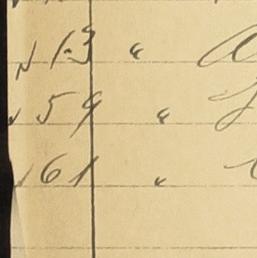 √ 13 "
√ 59 "
√ 61 "